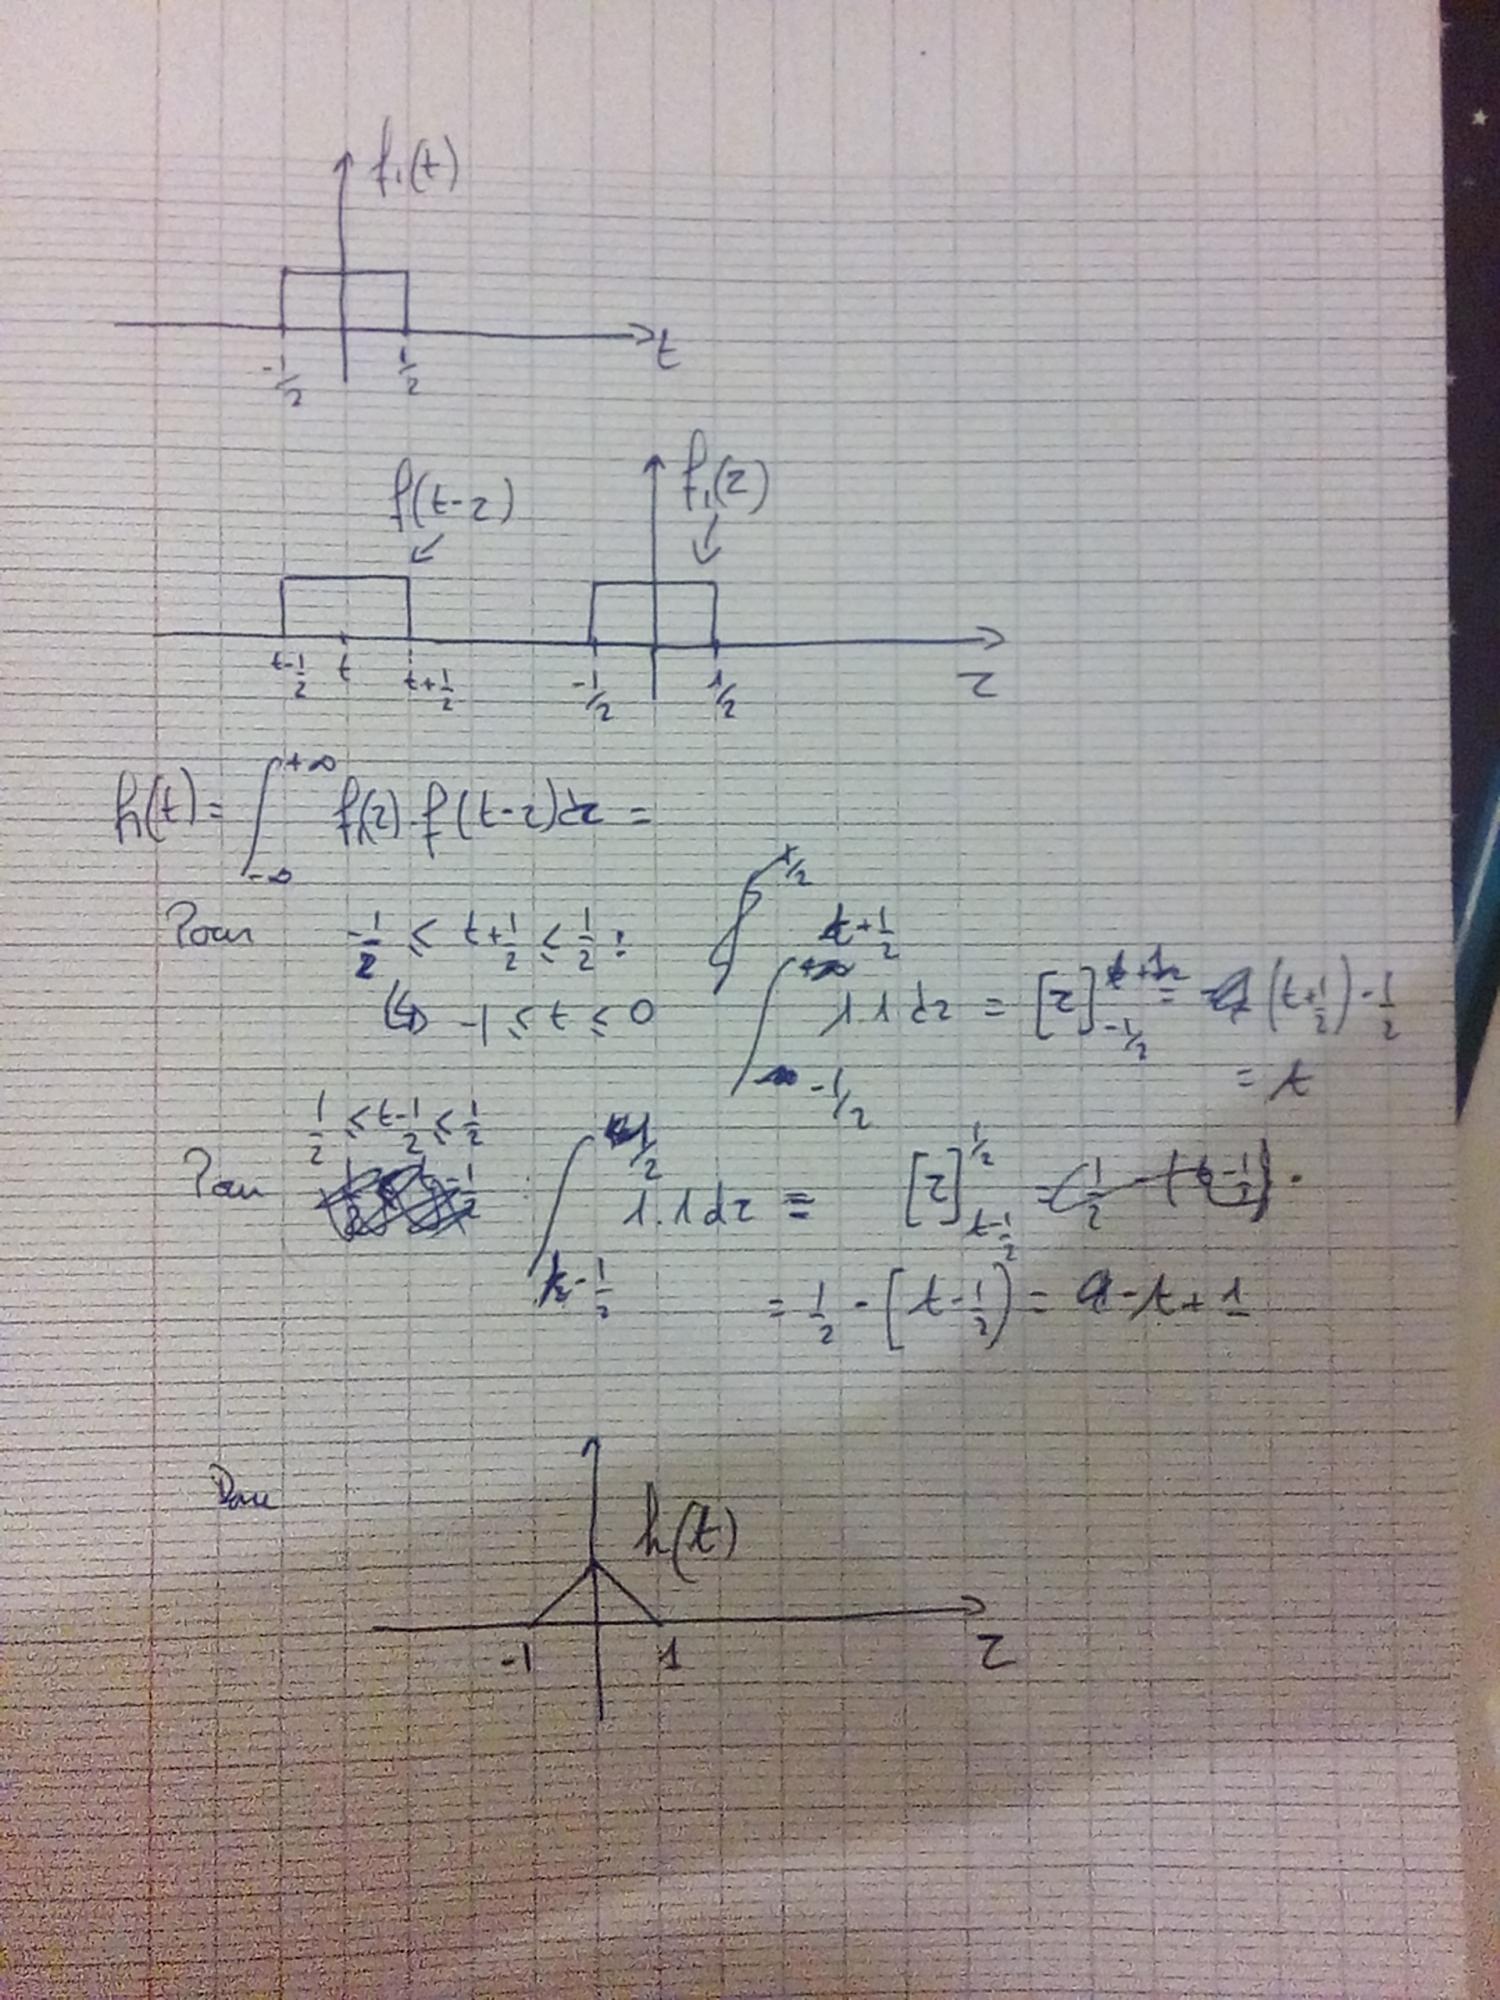 f₁(t)
t
-1/2 1/2
f(t-τ) f₁(τ)
t-1/2 t t+1/2 -1/2 1/2
τ
h(t) = ∫_{-∞}^{+∞} f₁(τ).f(t-τ)dτ =
Pour -1/2 ≤ t+1/2 ≤ 1/2 :
↳ -1 ≤ t ≤ 0 ∫_{-1/2}^{t+1/2} 1.1 dτ = [τ]_{-1/2}^{t+1/2} = (t+1/2) - 1/2
= t
1/2 ≤ t-1/2 ≤ 1/2
Pour : ∫_{t-1/2}^{1/2} 1.1 dτ = [τ]_{t-1/2}^{1/2}
= 1/2 - [t-1/2) = -t+1
h(t)
-1 1
τ